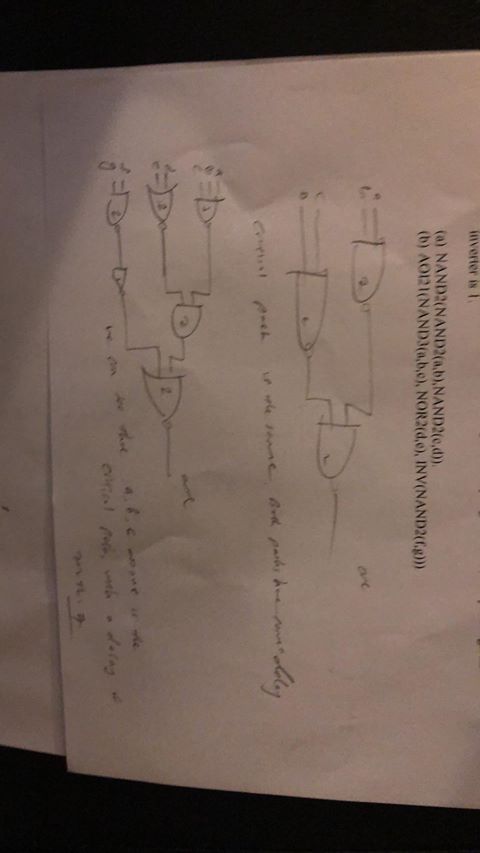 inverter is 1.
(a) NAND2(NAND2(a,b),NAND2(c,d)).
(b) AOI21(NAND3(a,b,c), NOR2(d,e), INV(NAND2(f,g)))
a
b
2
out
c
D
critical path is the same. Both paths have same delay
a
B
c
3
2
out
d
e
2
2
f
g
2
we can see that a, b, c is the
critical path, with a delay of